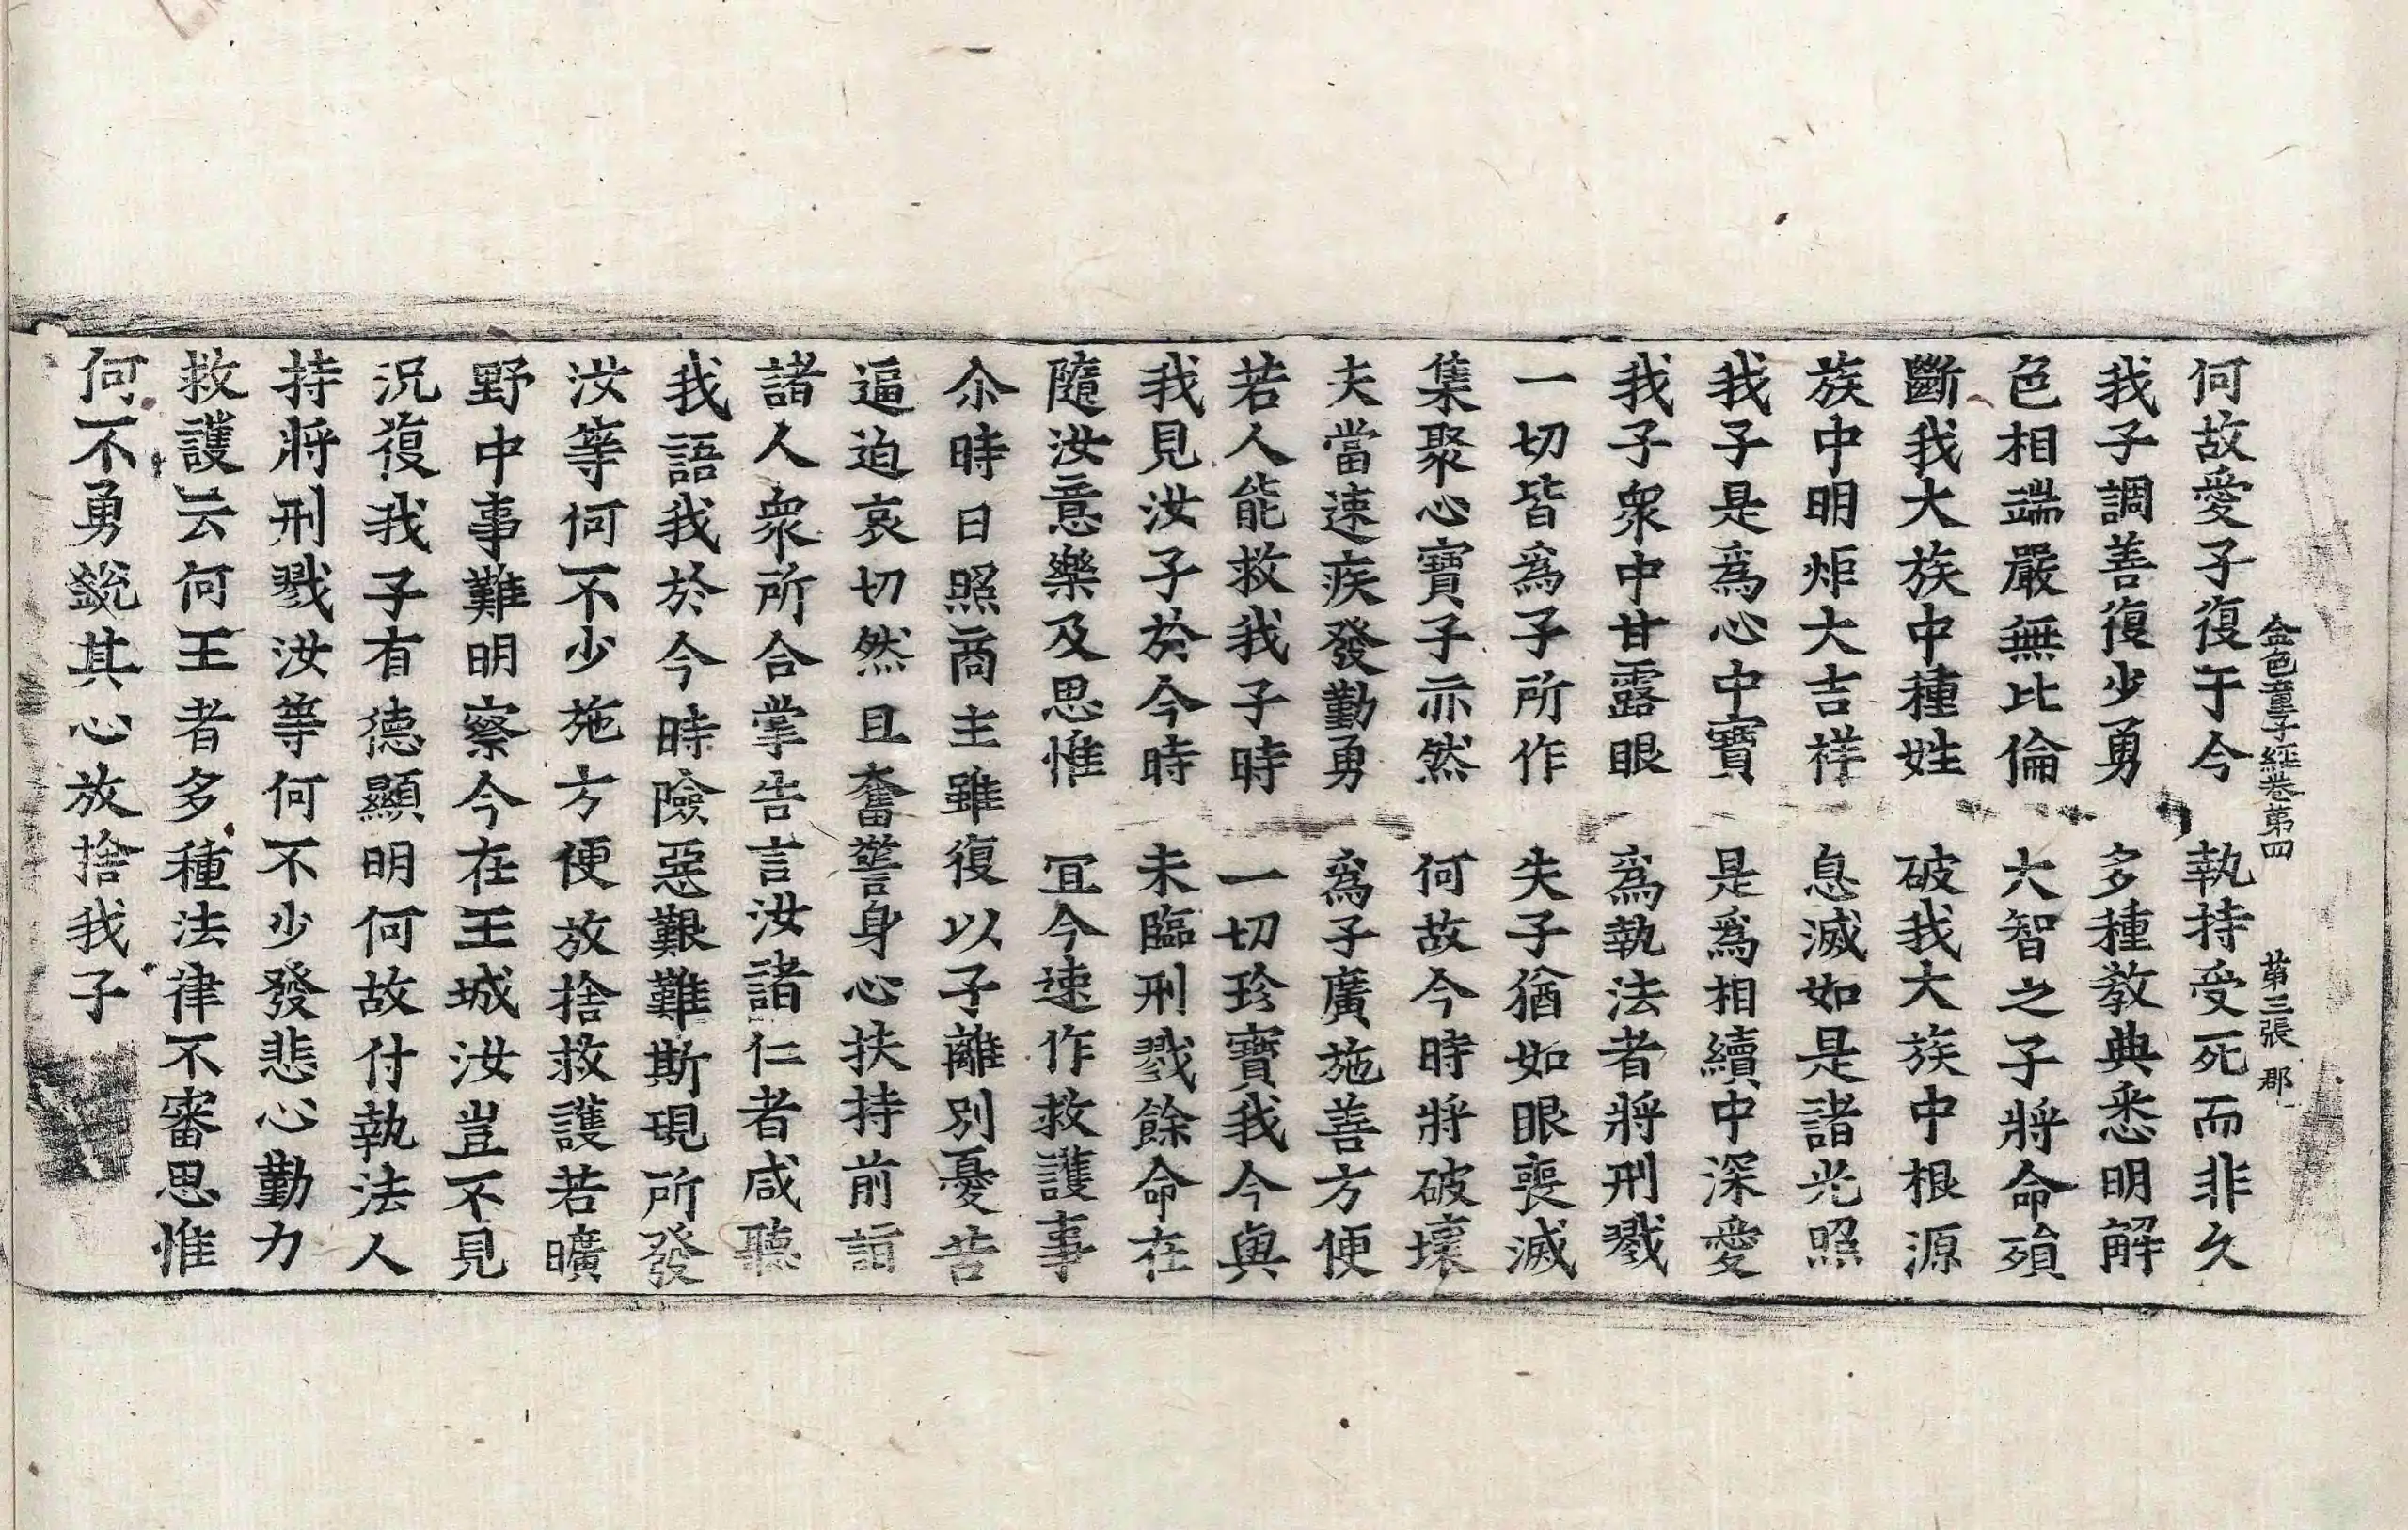 金色童子經卷第四 第三張 郡
何故愛子復于今 執持受死而非久
我子調善復少勇 多種教典悉明解
色相端嚴無比倫 大智之子將命殞
斷我大族中種姓 破我大族中根源
族中明炬大吉祥 息滅如是諸光照
我子是爲心中寶 是爲相續中深愛
我子衆中甘露眼 爲執法者將刑戮
一切皆爲子所作 失子猶如眼喪滅
集聚心寶子亦然 何故今時將破壞
夫當速疾發勤勇 爲子廣施善方便
若人能救我子時 一切珍寶我今與
我見汝子於今時 未臨刑戮餘命在
隨汝意樂及思惟 冝今速作救護事
尒時日照商主雖復以子離別憂苦
逼迫哀切然且奮警身心扶持前詣
諸人衆所合掌告言汝諸仁者咸聽
我語我於今時險惡艱難斯現所發
汝等何不少施方便放捨救護若曠
野中事難明察今在王城汝豈不見
況復我子有德顯明何故付執法人
持將刑戮汝等何不少發悲心勤力
救護云何王者多種法律不審思惟
何不勇銳其心放捨我子